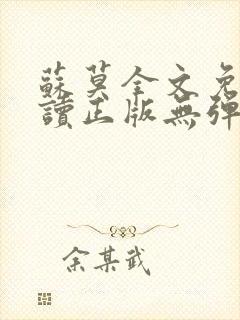 蘇莫全文免
讀正版無彈
余某武